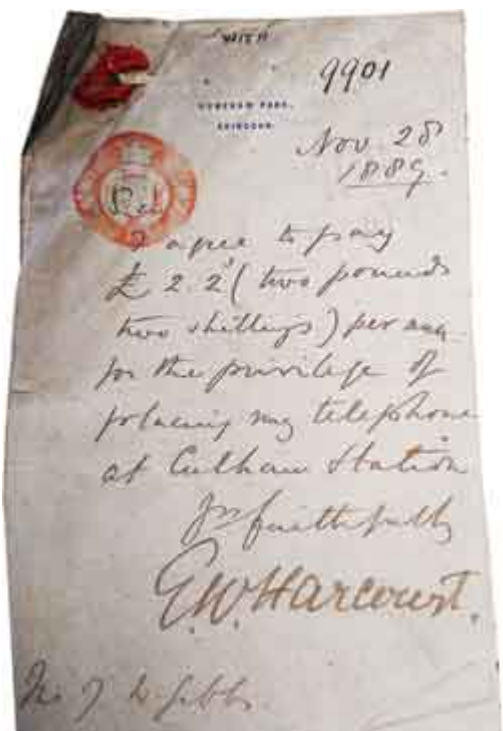 9901
NUNEHAM PARK,
ABINGDON.
Nov 28
1889.
I agree to pay
£ 2. 2 (two pounds
two shillings) per ann
for the privilege of
placing my telephone
at Culham Station
Yrs faithfully
E.W. Harcourt.